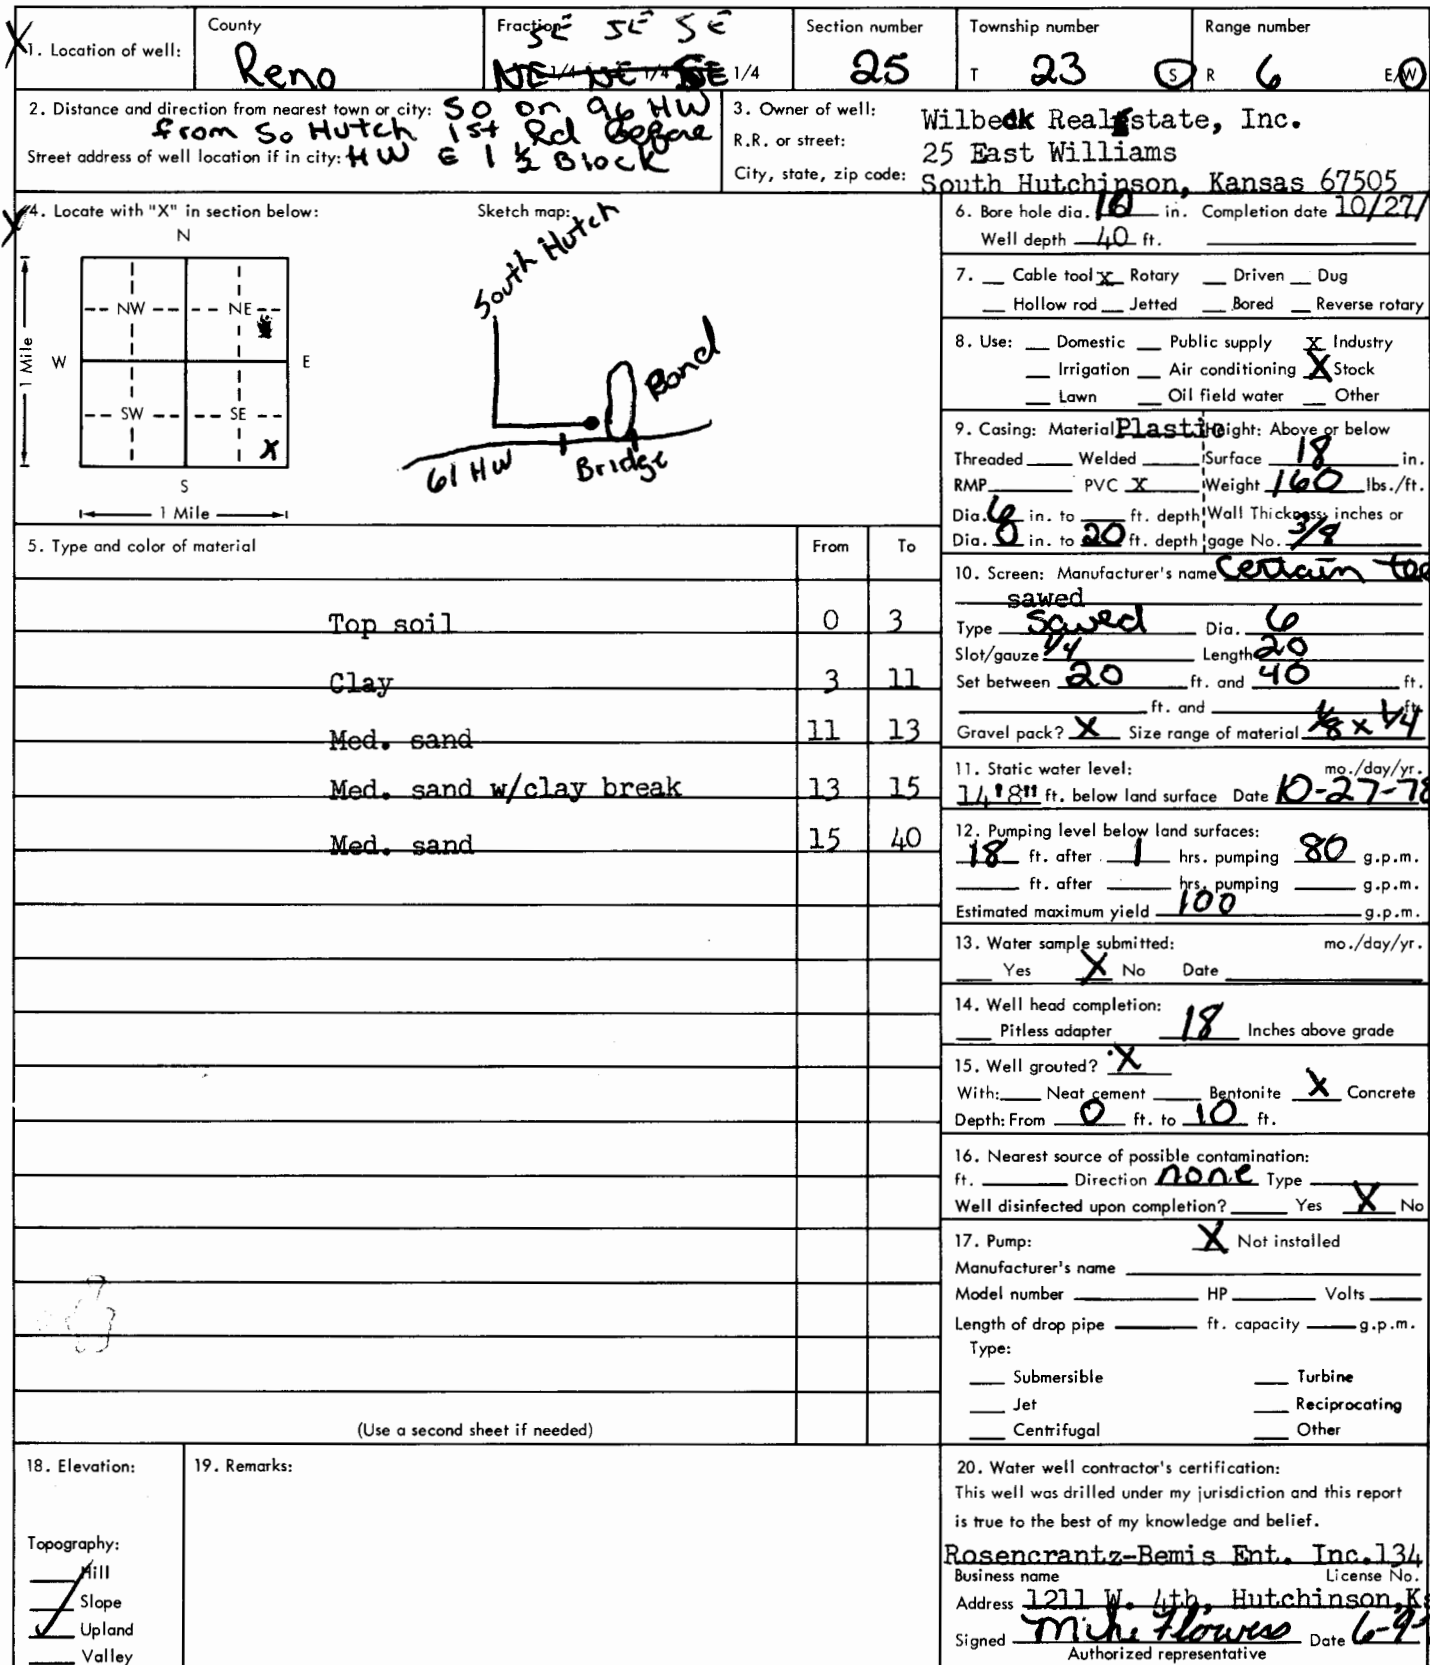 1. Location of well:
County
Reno
Fraction
SE SE SE
NE 1/4 NE 1/4 SE 1/4
Section number
25
Township number
T 23 S
Range number
R 6 E/W
2. Distance and direction from nearest town or city: So on 96 HW
from So Hutch 1st Rd before
Street address of well location if in city: HW E 1 1/2 Block
3. Owner of well: Wilbeck Real Estate, Inc.
R.R. or street: 25 East Williams
City, state, zip code: South Hutchinson, Kansas 67505
4. Locate with "X" in section below:
N
NW NE
W E
SW SE
X
S
1 Mile
1 Mile
Sketch map:
South Hutch
Bond
61 HW
Bridge
6. Bore hole dia. 10 in. Completion date 10/27/
Well depth 40 ft.
7. Cable tool x Rotary Driven Dug
Hollow rod Jetted Bored Reverse rotary
8. Use: Domestic Public supply x Industry
Irrigation Air conditioning X Stock
Lawn Oil field water Other
9. Casing: Material Plastic Height: Above or below
Threaded Welded Surface 18 in.
RMP PVC X Weight 160 lbs./ft.
Dia. 6 in. to ft. depth Wall Thickness: inches or
Dia. 0 in. to 20 ft. depth gage No. 3/8
5. Type and color of material From To
Top soil 0 3
Clay 3 11
Med. sand 11 13
Med. sand w/clay break 13 15
Med. sand 15 40
(Use a second sheet if needed)
10. Screen: Manufacturer's name Certain tee
sawed
Type Sawed Dia. 6
Slot/gauze 1/4 Length 20
Set between 20 ft. and 40 ft.
ft. and ft.
Gravel pack? X Size range of material 1/8 x 1/4
11. Static water level: mo./day/yr.
14'8" ft. below land surface Date 10-27-78
12. Pumping level below land surfaces:
18 ft. after 1 hrs. pumping 80 g.p.m.
ft. after hrs. pumping g.p.m.
Estimated maximum yield 100 g.p.m.
13. Water sample submitted: mo./day/yr.
Yes X No Date
14. Well head completion:
Pitless adapter 18 Inches above grade
15. Well grouted? X
With: Neat cement Bentonite X Concrete
Depth: From 0 ft. to 10 ft.
16. Nearest source of possible contamination:
ft. Direction none Type
Well disinfected upon completion? Yes X No
17. Pump: X Not installed
Manufacturer's name
Model number HP Volts
Length of drop pipe ft. capacity g.p.m.
Type:
Submersible Turbine
Jet Reciprocating
Centrifugal Other
18. Elevation:
Topography:
Hill
Slope
Upland
Valley
19. Remarks:
20. Water well contractor's certification:
This well was drilled under my jurisdiction and this report
is true to the best of my knowledge and belief.
Rosencrantz-Bemis Ent. Inc. 134
Business name License No.
Address 1211 W. 4th, Hutchinson, Ks
Signed Mike Flowers Date 6-9-
Authorized representative